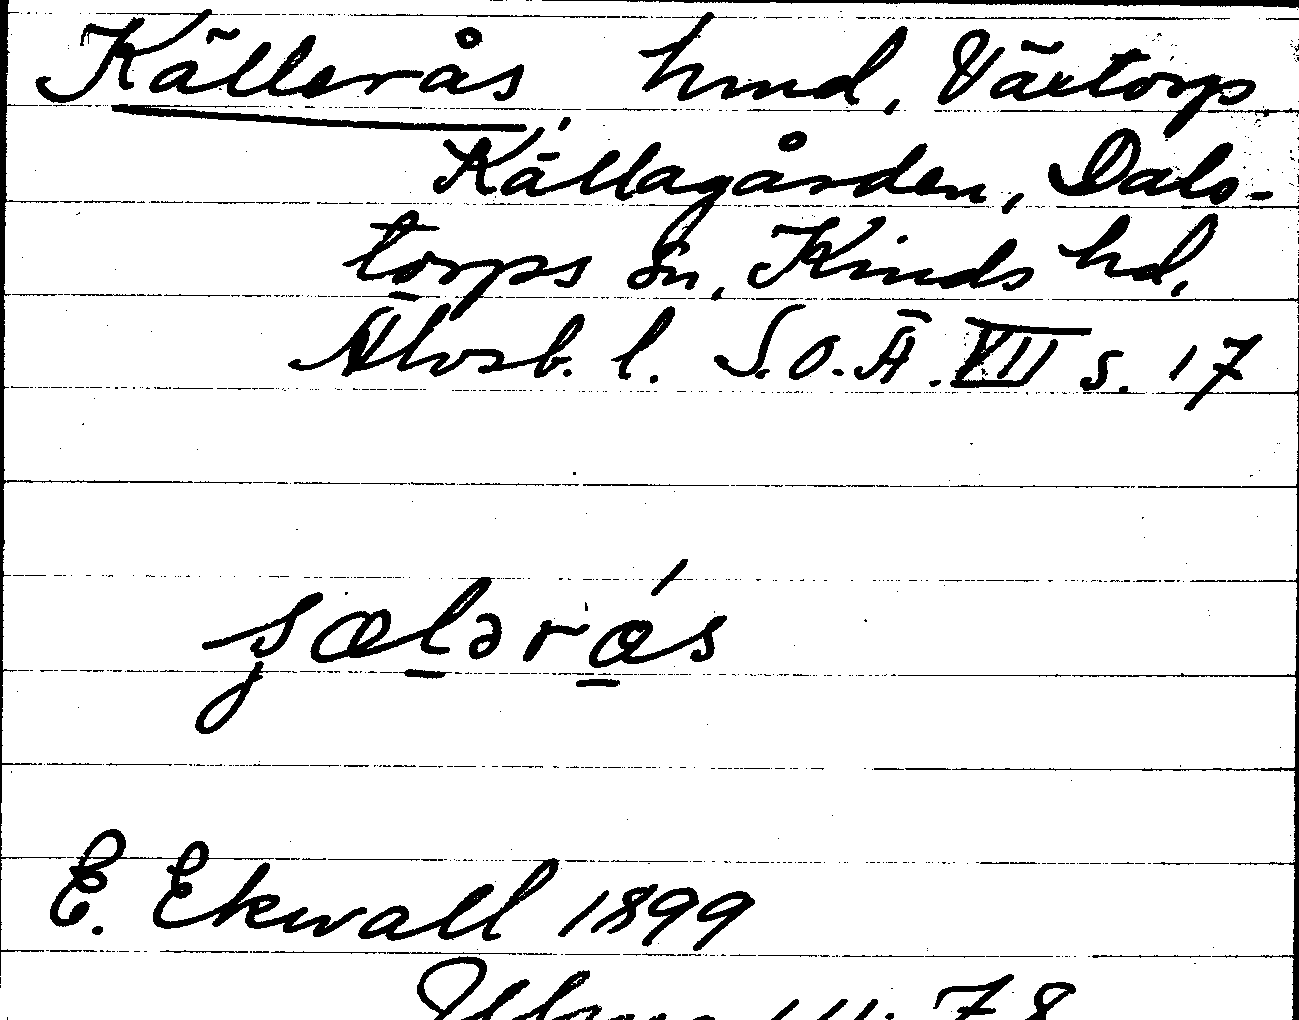 Källerås, hmd, Växtorps
Källagården, Dals-
torps sn, Kinds hd,
Älvsb. l. S.O.Ä. VII s. 17
E. Ekwall 1899